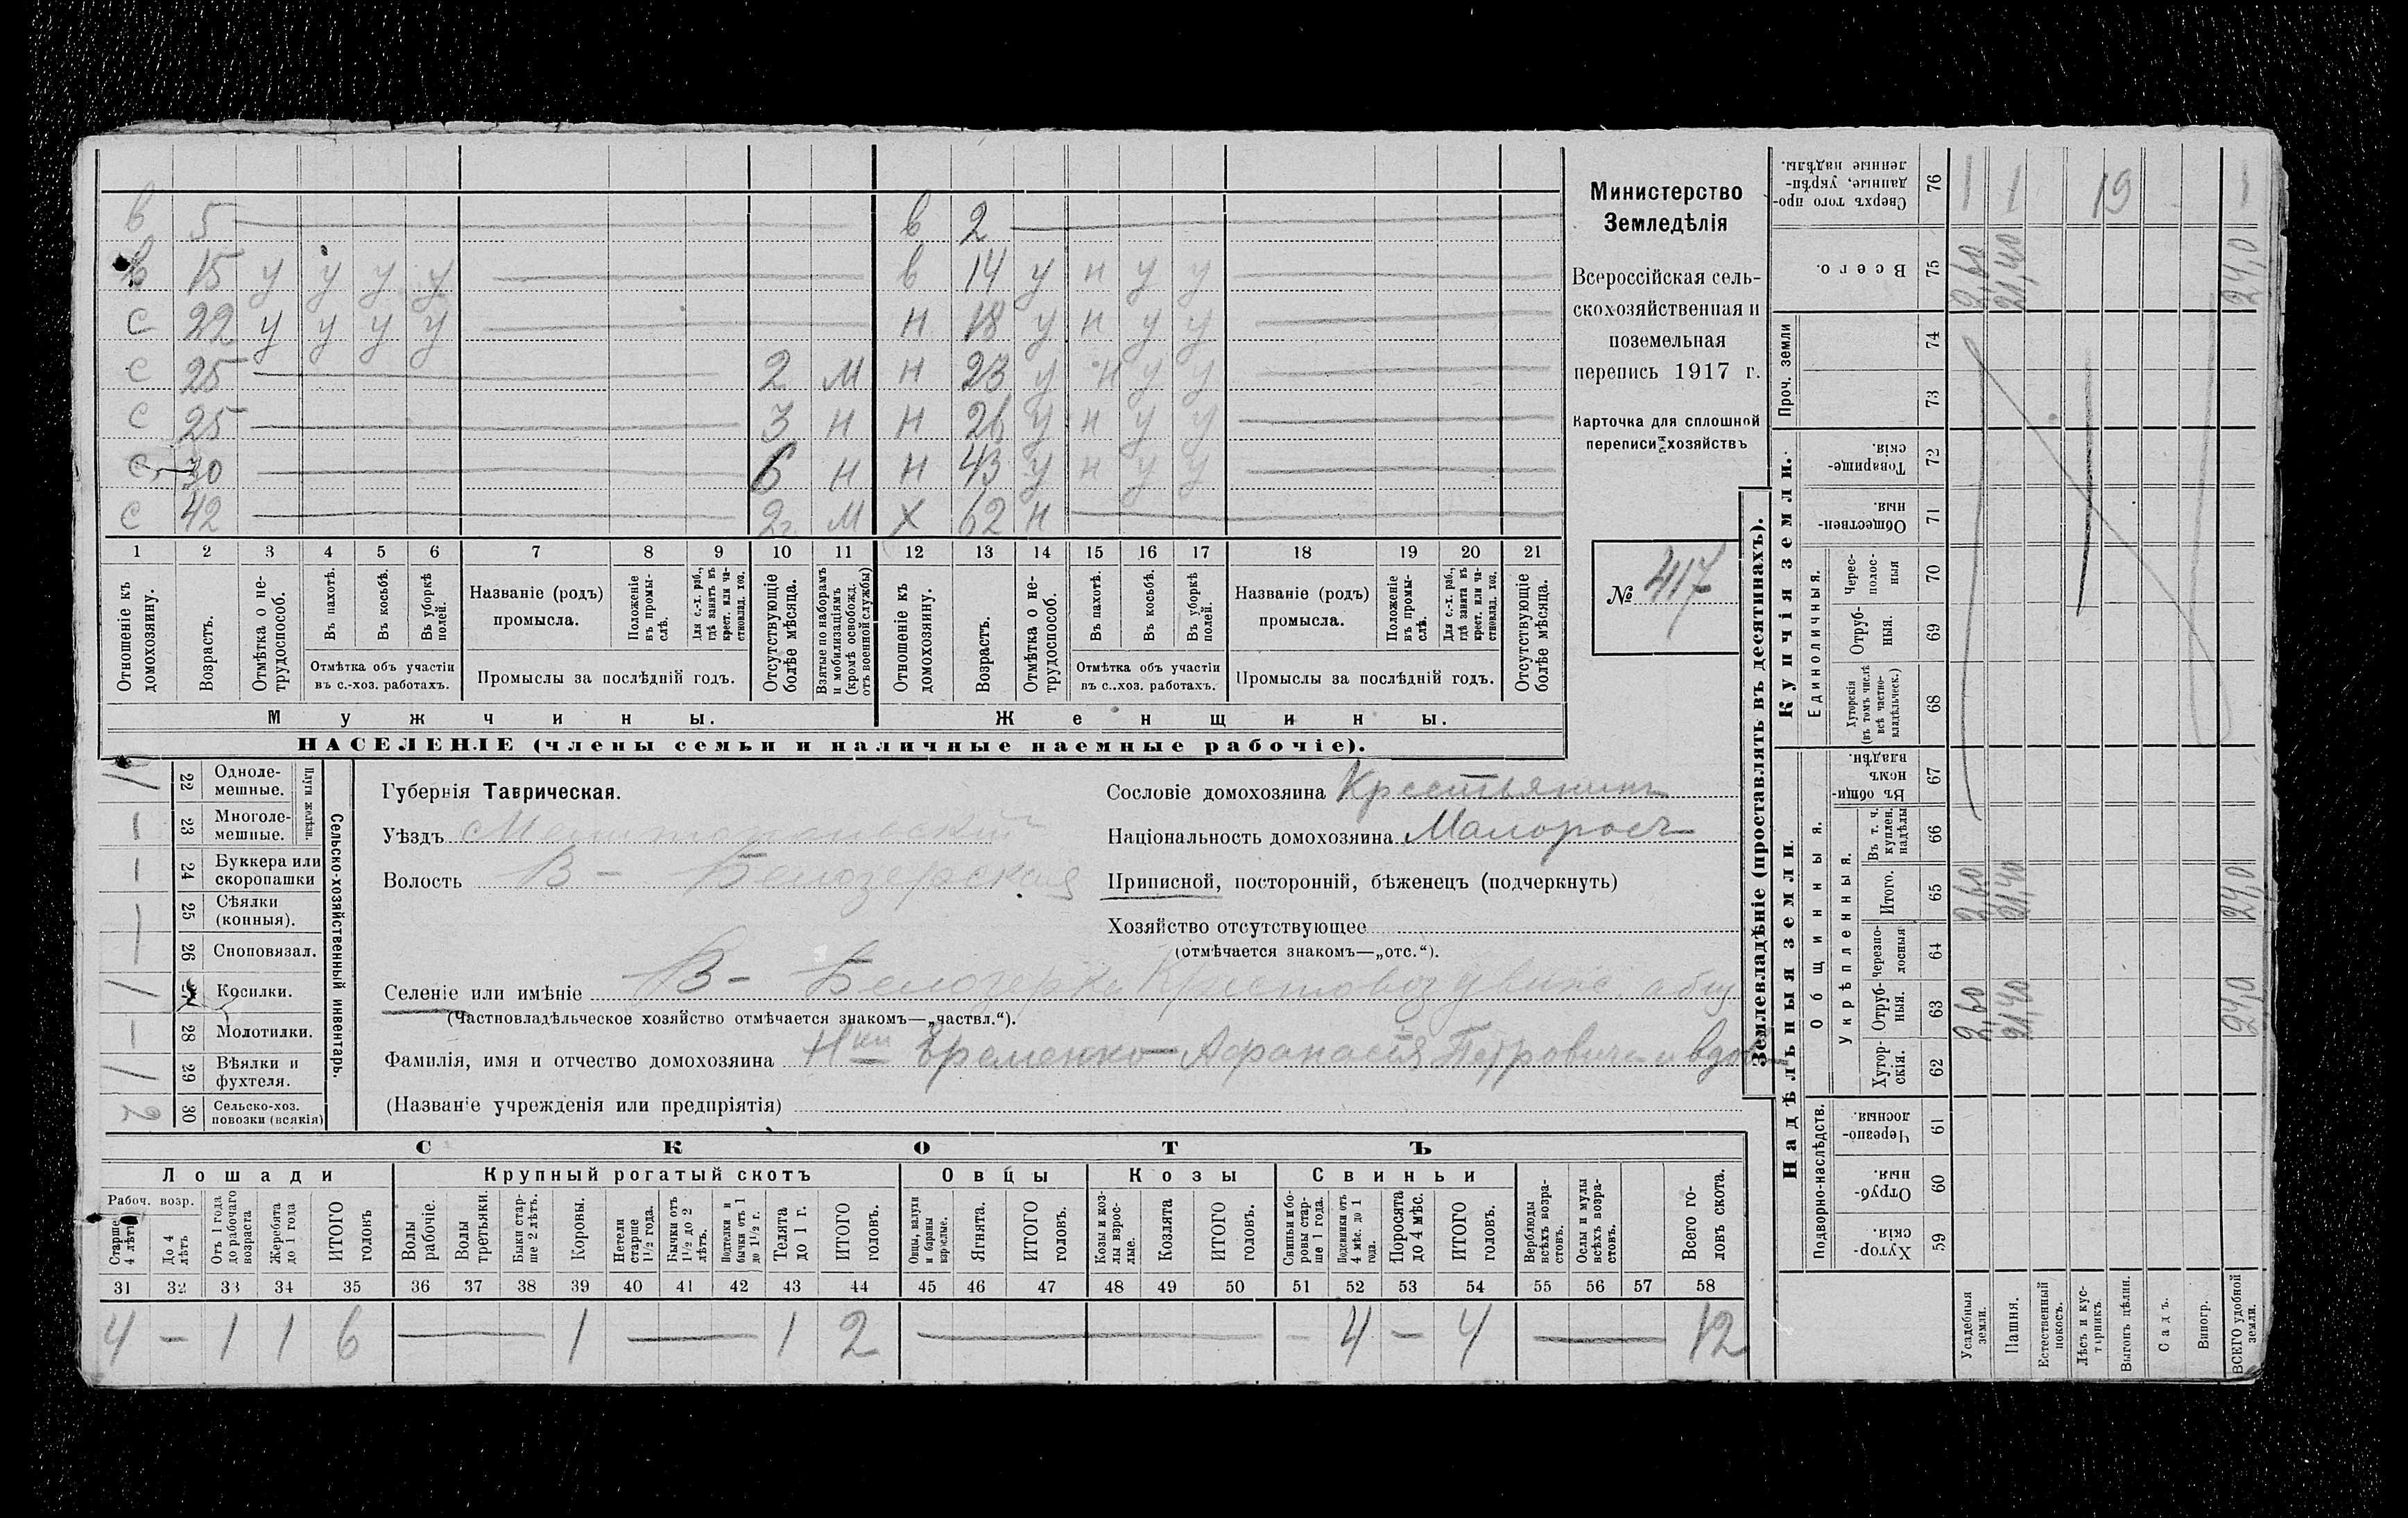 в 5 — в 2 —
в 15 у у у у — в 14 у н у у —
с 22 у у у у — н 18 у н у у —
с 25 — 2 м н 23 у н у у —
с 25 — 3 н н 26 у н у у —
с 30 — 6 н н 43 у н у у —
с 42 — 2 м х 62 н —
1 2 3 4 5 6 7 8 9 10 11 12 13 14 15 16 17 18 19 20 21
Отношеніе къ домохозяину.
Возрастъ.
Отмѣтка о нетрудоспособ.
Въ пахотѣ.
Въ косьбѣ.
Въ уборкѣ полей.
Отмѣтка объ участіи въ с.-хоз. работахъ.
Названіе (родъ) промысла.
Положеніе въ промыслѣ.
Для с.-х. раб., гдѣ занятъ въ крест. или частновлад. хоз.
Промыслы за послѣдній годъ.
Отсутствующіе болѣе мѣсяца.
Взятые по наборамъ и мобилизаціямъ (кромѣ освобожд. отъ военной службы)
Отношеніе къ домохозяину.
Возрастъ.
Отмѣтка о нетрудоспособ.
Въ пахотѣ.
Въ косьбѣ.
Въ уборкѣ полей.
Отмѣтка объ участіи въ с..хоз. работахъ.
Названіе (родъ) промысла.
Положеніе въ промыслѣ.
Для с.-х. раб., гдѣ занята въ крест. или частновлад. хоз.
Промыслы за послѣдній годъ.
Отсутствующіе болѣе мѣсяца.
Мужчины.
Женщины.
НАСЕЛЕНІЕ (члены семьи и наличные наемные рабочіе).
Министерство
Земледѣлія
Всероссійская сель-
скохозяйственная и
поземельная
перепись 1917 г.
Карточка для сплошной
переписи хозяйствъ
№ 417
Плуги желѣзн.
22 Одноле-
мешные. 1
23 Многоле-
мешные. —
24 Буккера или
скоропашки —
25 Сѣялки
(конныя). —
26 Сноповязал.
Косилки. 1
28 Молотилки. —
29 Вѣялки и
фухтеля. 1
30 Сельско-хоз.
повозки (всякія) 2
Сельско-хозяйственный инвентарь.
Губернія Таврическая.
Уѣздъ Мелитопольскій
Волость В - Белозерская
Селеніе или имѣніе В - Белозерка Крестовоздвиж общ
(Частновладѣльческое хозяйство отмѣчается знакомъ—„частвл.“).
Фамилія, имя и отчество домохозяина Нки Еременко Афанасія Петровича и вдов
(Названіе учрежденія или предпріятія)
Сословіе домохозяина Крестьянинъ
Національность домохозяина Малороссъ
Приписной, посторонній, бѣженецъ (подчеркнуть)
Хозяйство отсутствующее
(отмѣчается знакомъ—„отс.“).
СКОТЪ
Лошади
Крупный рогатый скотъ
Овцы
Козы
Свиньи
Рабоч. возр.
Старше 4 лѣтъ
До 4 лѣтъ
Отъ 1 года до рабочаго возраста
Жеребята до 1 года
ИТОГО головъ
Волы рабочіе.
Волы третьяки.
Быки старше 2 лѣтъ.
Коровы.
Нетели старше 1½ года.
Бычки отъ 1½ до 2 лѣтъ.
Подтелки и бычки отъ 1 до 1½ г.
Телята до 1 г.
ИТОГО головъ.
Овцы, валухи и бараны взрослые.
Ягнята.
ИТОГО головъ.
Козы и козлы взрослые.
Козлята
ИТОГО головъ.
Свиньи и боровы старше 1 года.
Подсвинки отъ 4 мѣс. до 1 года.
Поросята до 4 мѣс.
ИТОГО головъ.
Верблюды всѣхъ возрастовъ.
Ослы и мулы всѣхъ возрастовъ.
Всего головъ скота.
31 32 33 34 35 36 37 38 39 40 41 42 43 44 45 46 47 48 49 50 51 52 53 54 55 56 57 58
4 — 1 1 6 — 1 — 1 2 — — 4 — 4 — 12
Землевладѣніе (проставлять въ десятинахъ).
Надѣльныя земли.
Купчія земли.
Проч. земли
Подворно-наслѣдств.
Общинныя.
Укрѣпленныя.
Единоличныя.
Сверхъ того проданные, укрѣпленные надѣлы. 76 19
Всего. 75 2,60 21,40 24,0
74
73
Товарищескія. 72
Общественныя. 71
Черес-полосныя 70
Отрубныя. 69
Хуторскія (въ томъ числѣ всѣ частновладѣльческ.) 68
Въ общинномъ владѣн. 67
Въ т. ч. куплен. надѣлы 66
Итого. 65 2,60 21,40 24,0
Черезполосныя 64
Отрубныя. 63 2,60 21,40 24,0
Хуторскія. 62
Черезполосныя. 61
Отрубныя. 60
Хуторскія. 59
Усадебныя земли.
Пашня.
Естественный покосъ.
Лѣсъ и кустарникъ.
Выгонъ цѣлин.
Садъ.
Виногр.
ВСЕГО удобной земли.